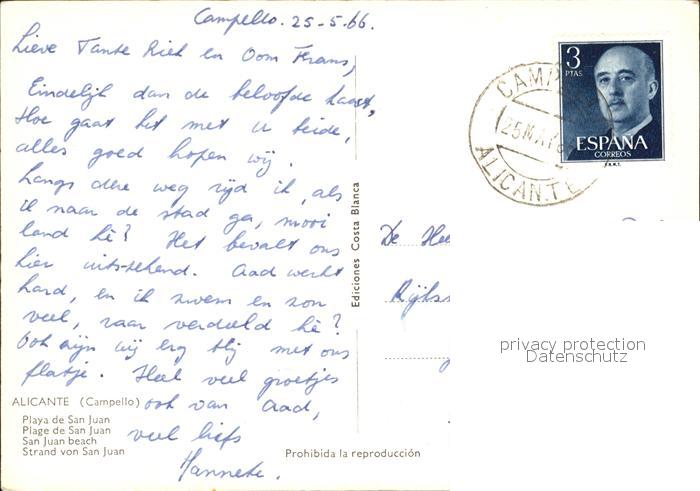 Campello. 25-5-66.
Lieve Tante Riek en Oom Frans,
Eindelijk dan de beloofde kaart,
Hoe gaat het met u beide,
alles goed hopen wij.
Langs deze weg rijd ik, als
ik naar de stad ga, mooi
land hè? Het bevalt ons
hier uitstekend. Aad werkt
hard, en ik zwem en zon
veel, raar verdeeld hè?
Ook zijn wij erg blij met ons
flatje. Heel veel groetjes
ook van Aad,
veel liefs
Hanneke.
ALICANTE (Campello)
Playa de San Juan
Plage de San Juan
San Juan beach
Strand von San Juan
Prohibida la reproducción
Ediciones Costa Blanca
3
PTAS
ESPAÑA
CORREOS
F.N.M.T.
25 MA
ALICANTE
De
privacy protection
Datenschutz